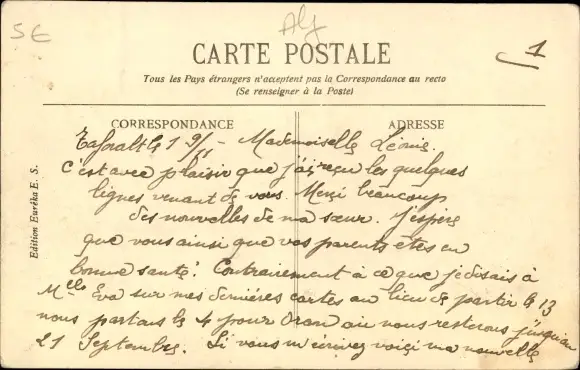 5€
Alg
1
CARTE POSTALE
Tous les Pays étrangers n'acceptent pas la Correspondance au recto
(Se renseigner à la Poste)
CORRESPONDANCE
ADRESSE
Taforalt le 19/11 - Mademoiselle Léonie.
C'est avec plaisir que j'ai reçu les quelques
lignes venant de vous. Merci beaucoup
des nouvelles de ma sœur. J'espère
que vous ainsi que vos parents êtes en
bonne santé. Contrairement à ce que je disais à
Melle Eva sur mes dernières cartes au lieu de partir le 13
nous partons le 4 pour Oran où nous resterons jusqu'au
21 Septembre. Si vous m'écrivez voici ma nouvelle
Edition Eurêka E. S.